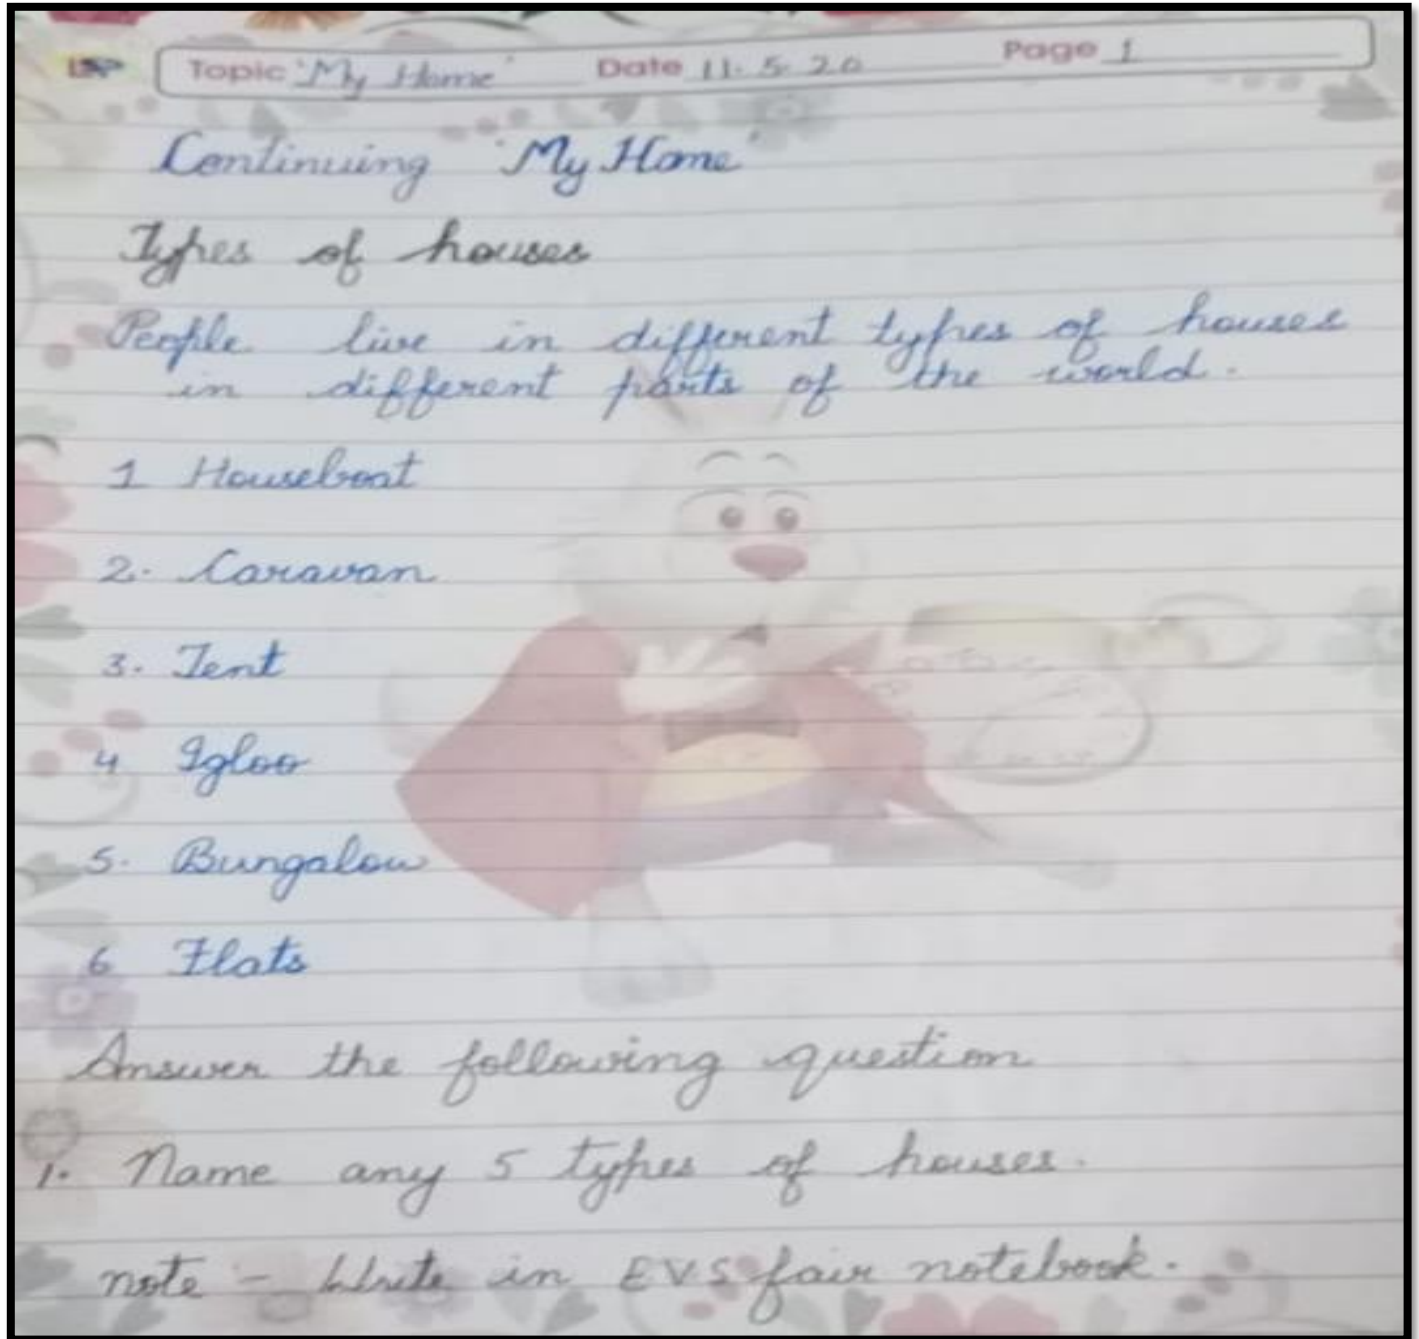 Topic 'My Home' Date 11.5.20 Page 1
Continuing 'My Home'
Types of houses
People live in different types of houses
in different parts of the world.
1 Houseboat
2. Caravan
3. Tent
4 Igloo
5. Bungalow
6 Flats
Answer the following question
1. Name any 5 types of houses.
note - Write in EVS fair notebook.